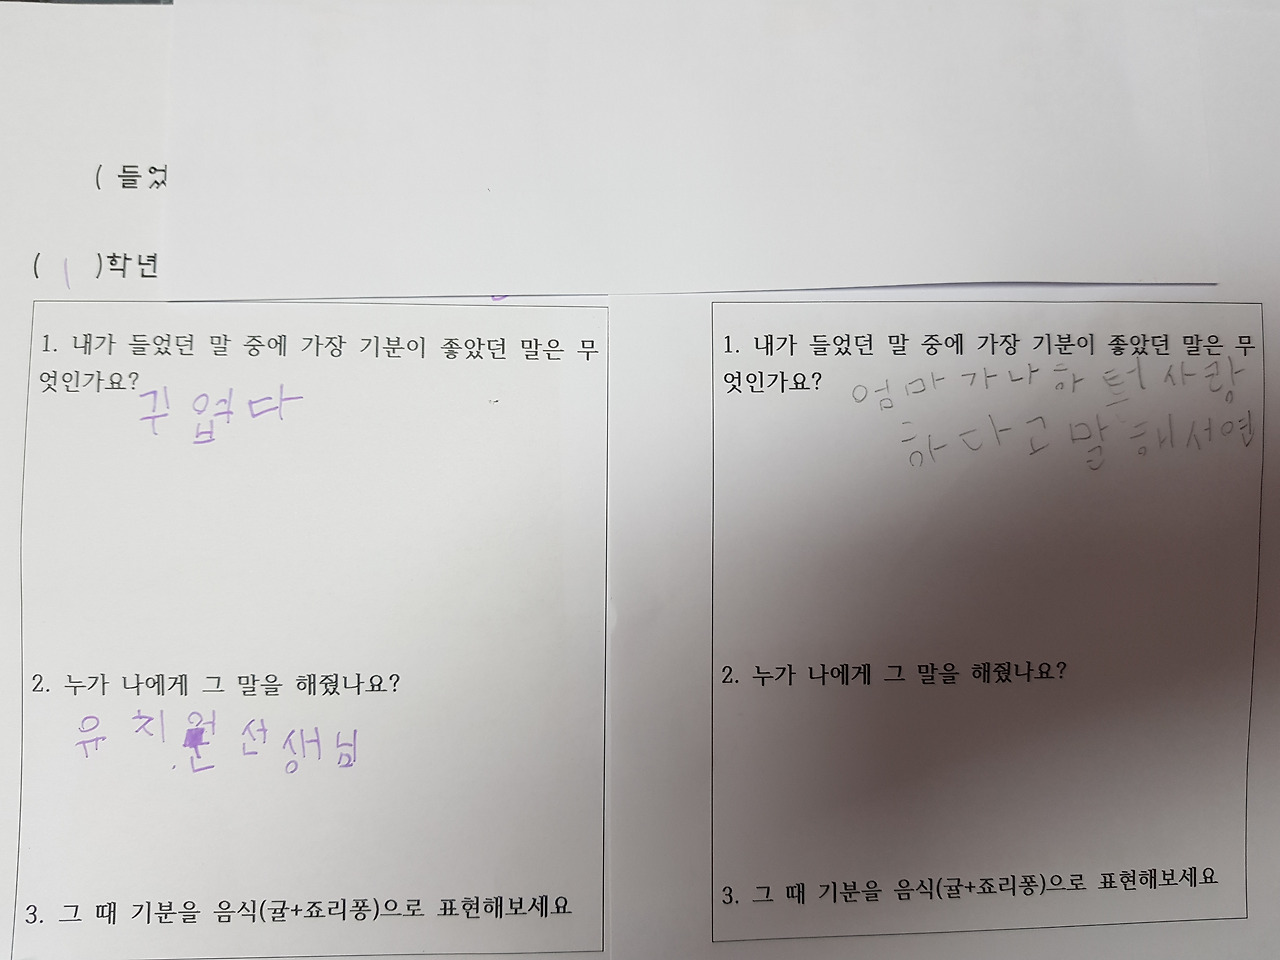 ( 들었
( 1 )학년
1. 내가 들었던 말 중에 가장 기분이 좋았던 말은 무
엇인가요?
귀엽다
2. 누가 나에게 그 말을 해줬나요?
유치원선생님
3. 그 때 기분을 음식(귤+죠리퐁)으로 표현해보세요
1. 내가 들었던 말 중에 가장 기분이 좋았던 말은 무
엇인가요?
엄마가나하트사랑
하다고말해서여
2. 누가 나에게 그 말을 해줬나요?
3. 그 때 기분을 음식(귤+죠리퐁)으로 표현해보세요